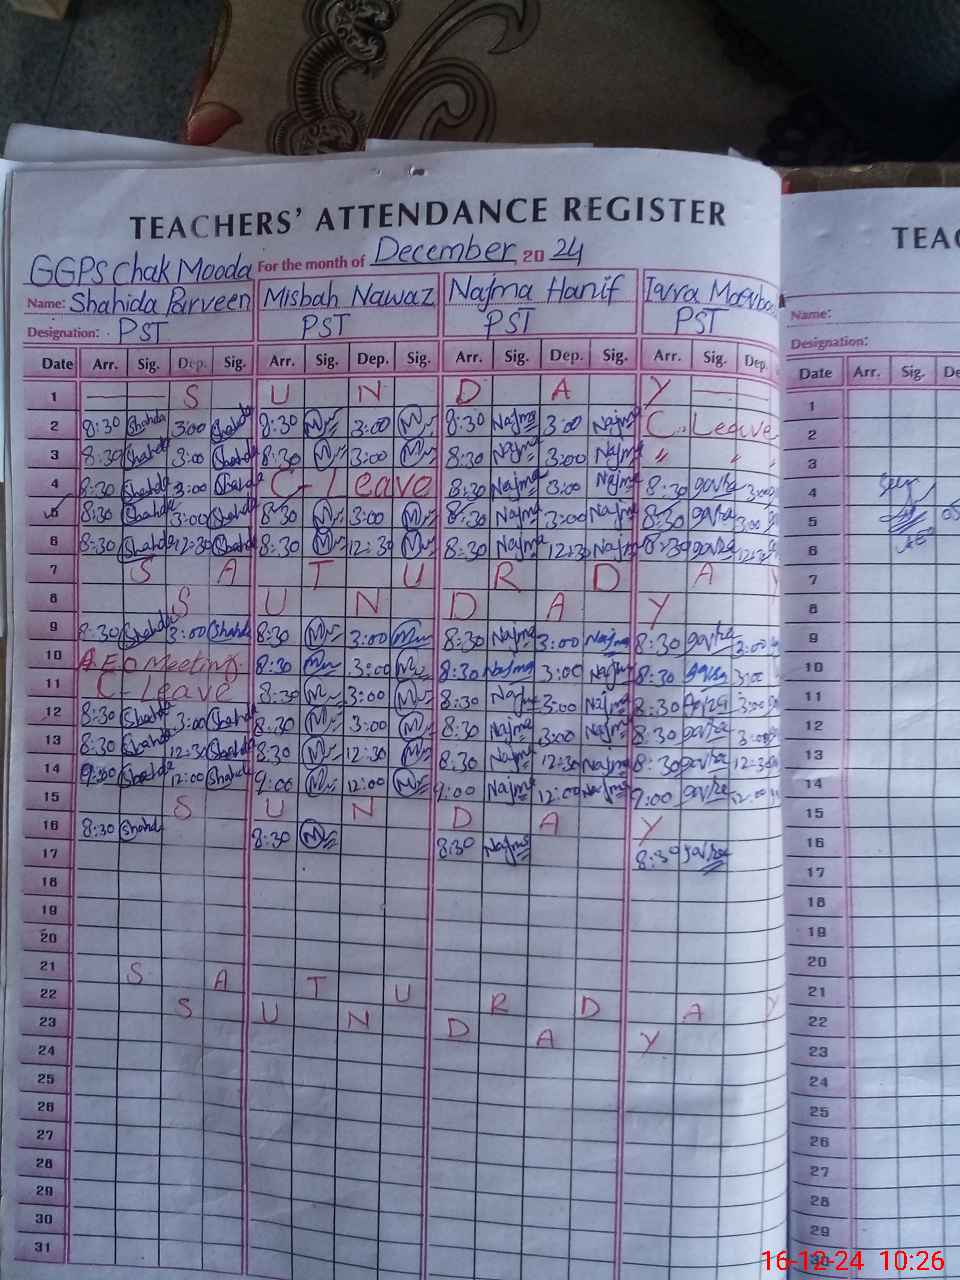 TEACHERS' ATTENDANCE REGISTER
GGPS Chak Mooda For the month of December, 2024
Name: Shahida Parveen Misbah Nawaz Najma Hanif Iqra
Designation: PST PST PST PST
Date Arr. Sig. Dep. Sig. Arr. Sig. Dep. Sig. Arr. Sig. Dep. Sig. Arr. Sig. Dep.
1 S U N D A Y
2 8:30 Shahida 3:00 Shahida 8:30 M 3:00 M 8:30 Najma 3:00 Najma C. Leave
3 8:30 Shahida 3:00 Shahida 8:30 M 3:00 M 8:30 Najma 3:00 Najma " " "
4 8:30 Shahida 3:00 Shahida C- Leave 8:30 Najma 3:00 Najma 8:30 3:00
5 8:30 Shahida 3:00 Shahida 8:30 M 3:00 M 8:30 Najma 3:00 Najma 8:30 3:00
6 8:30 Shahida 12:30 Shahida 8:30 M 12:30 M 8:30 Najma 12:30 Najma 8:30 12:30
7 S A T U R D A Y
8 S U N D A Y
9 8:30 Shahida 3:00 Shahida 8:30 M 3:00 M 8:30 Najma 3:00 Najma 8:30 3:00
10 AEO Meeting 8:30 M 3:00 M 8:30 Najma 3:00 Najma 8:30 3:00
11 C- Leave 8:30 M 3:00 M 8:30 Najma 3:00 Najma 8:30 3:00
12 8:30 Shahida 3:00 Shahida 8:30 M 3:00 M 8:30 Najma 3:00 Najma 8:30 3:00
13 8:30 Shahida 12:30 Shahida 8:30 M 12:30 M 8:30 Najma 12:30 Najma 8:30 12:30
14 9:00 Shahida 12:00 Shahida 9:00 M 12:00 M 9:00 Najma 12:00 Najma 9:00 12:00
15 S U N D A Y
16 8:30 Shahida 8:30 M 8:30 Najma 8:30
17
18
19
20
21 S A T U R D A Y
22 S U N D A Y
23
24
25
26
27
28
29
30
31
TEAC
Name:
Designation:
Date Arr. Sig. De
1
2
3
4
5
6
7
8
9
10
11
12
13
14
15
16
17
18
19
20
21
22
23
24
25
26
27
28
29
30
16-12-24 10:26